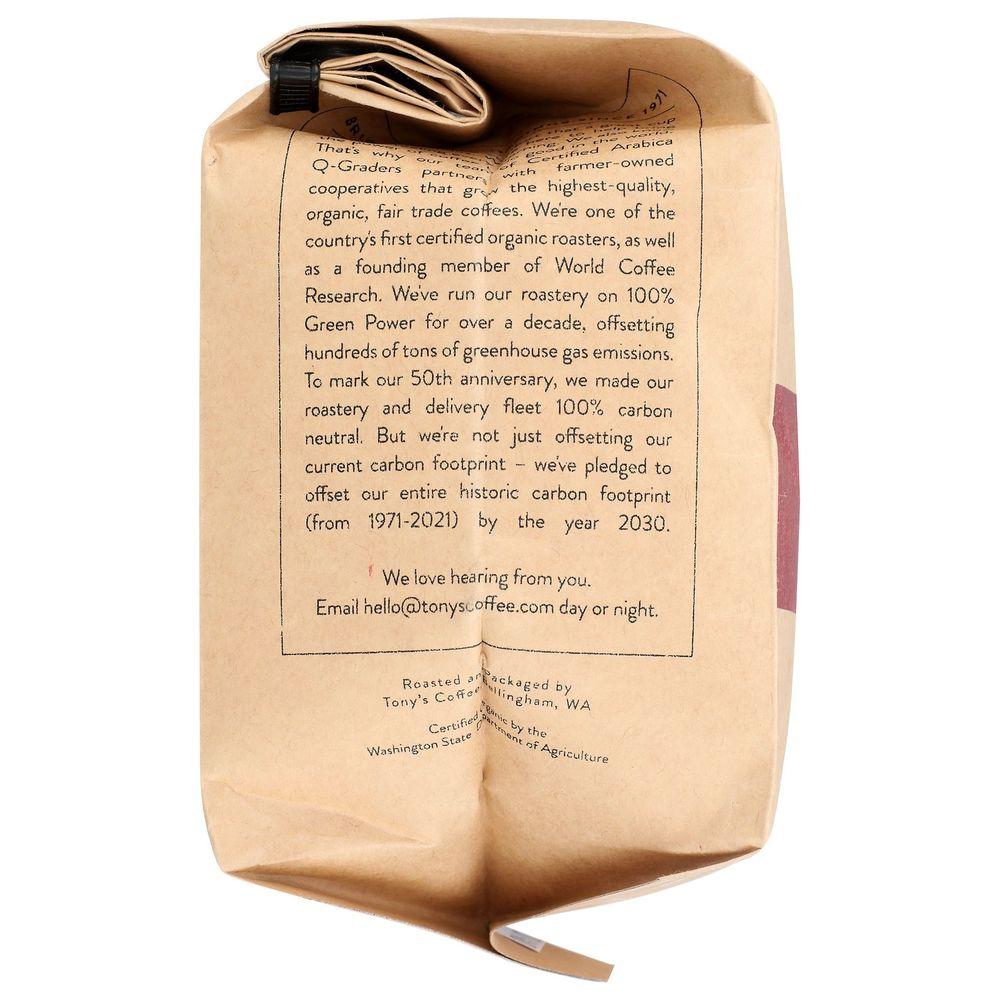 SINCE 1971
good in the world.
That's why our team of Certified Arabica
Q-Graders partners with farmer-owned
cooperatives that grow the highest-quality,
organic, fair trade coffees. We're one of the
country's first certified organic roasters, as well
as a founding member of World Coffee
Research. We've run our roastery on 100%
Green Power for over a decade, offsetting
hundreds of tons of greenhouse gas emissions.
To mark our 50th anniversary, we made our
roastery and delivery fleet 100% carbon
neutral. But we're not just offsetting our
current carbon footprint – we've pledged to
offset our entire historic carbon footprint
(from 1971-2021) by the year 2030.
We love hearing from you.
Email hello@tonyscoffee.com day or night.
Roasted and Packaged by
Tony's Coffee Bellingham, WA
Certified Organic by the
Washington State Department of Agriculture